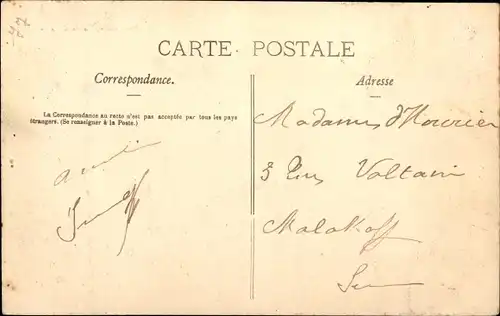 CARTE POSTALE
Correspondance.
La Correspondance au recto n'est pas acceptée par tous les pays
étrangers. (Se renseigner à la Poste.)
Adresse
Madame d'Hourier
3 Rue Voltaire
Malakoff
Seine